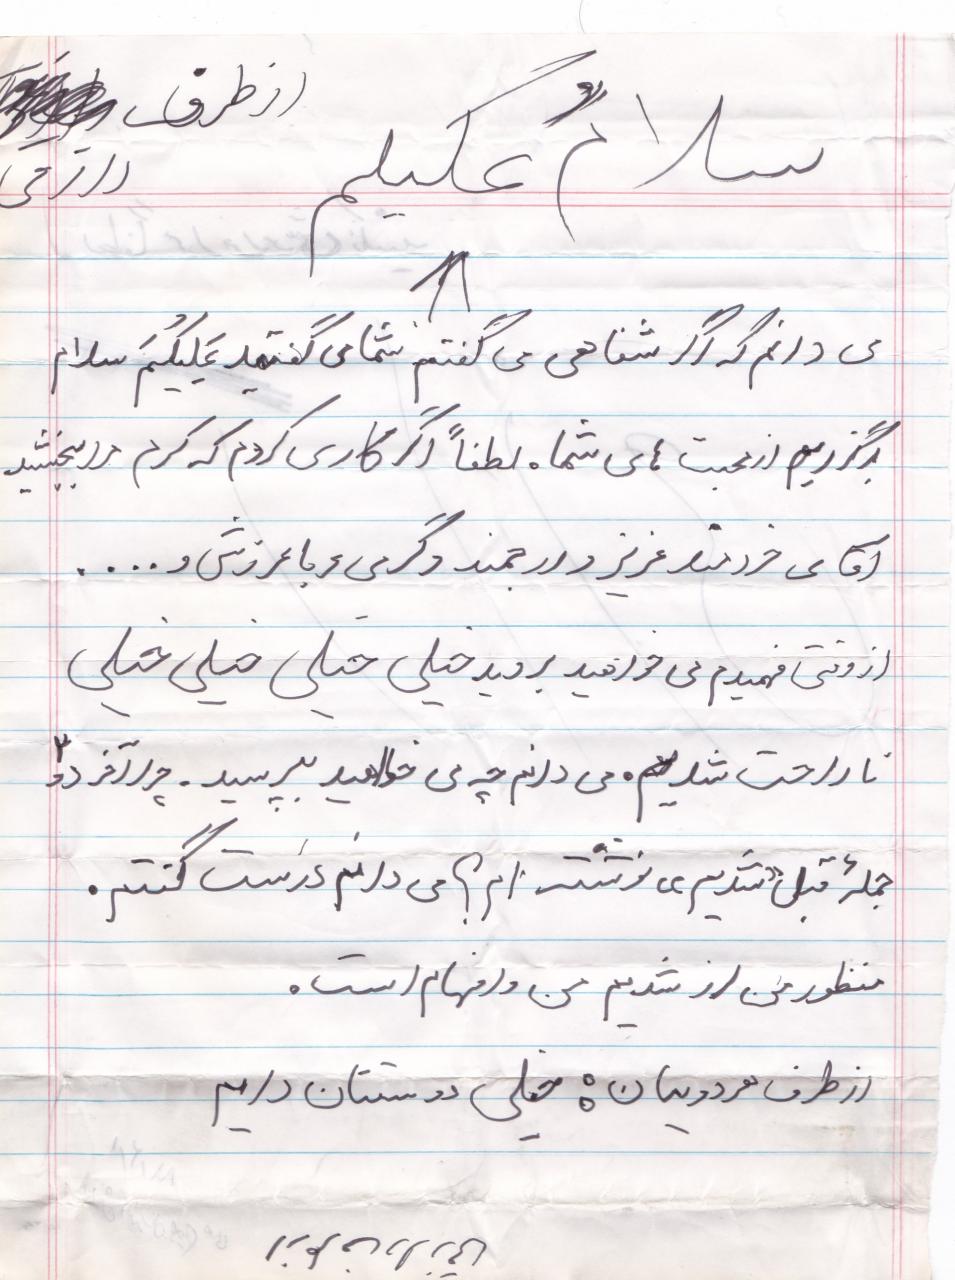 از طرف
سلامٌ علیکم
می دانم که اگر شفاهی می گفتم شما می گفتید عَلیکُم سلام
بگذریم از محبت های شما. لطفاً اگر کاری کردم که کردم مرا ببخشید
آقا ی خردمند عزیز و ارجمند و گرمی و با عرزش و ....
از وقتی فهمیدم می خواهید بروید خیلی خیلی خیلی خیلی
ناراحت شدیم. می دانم چه می خواهید بپرسید. چرا آخر دو ۳
جملهٔ قبل «شدیم» نوشته ام؟ می دانم درست گفتم.
منظور من از شدیم من و افهام است.
از طرف هر دویمان: خیلی دوستتان داریم